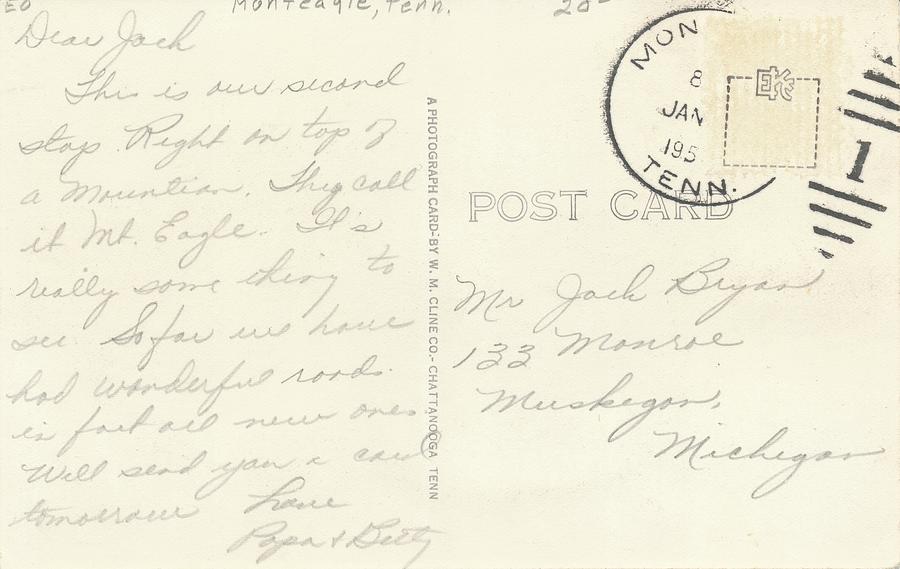 Monteagle, Tenn.
20-
Dear Jack
This is our second
stop. Right on top of
a Mountian. They call
it Mt. Eagle. It's
really some thing to
see. So far we have
had wonderful roads.
in fact all new ones.
Will send you a card
tomorrow Love
Papa & Betty
A PHOTOGRAPH CARD-BY W. M. CLINE CO.- CHATTANOOGA TENN
MON
8
JAN
195
TENN.
1
EKC
POST CARD
Mr Jack Bryan
133 Monroe
Muskegon,
Michigan